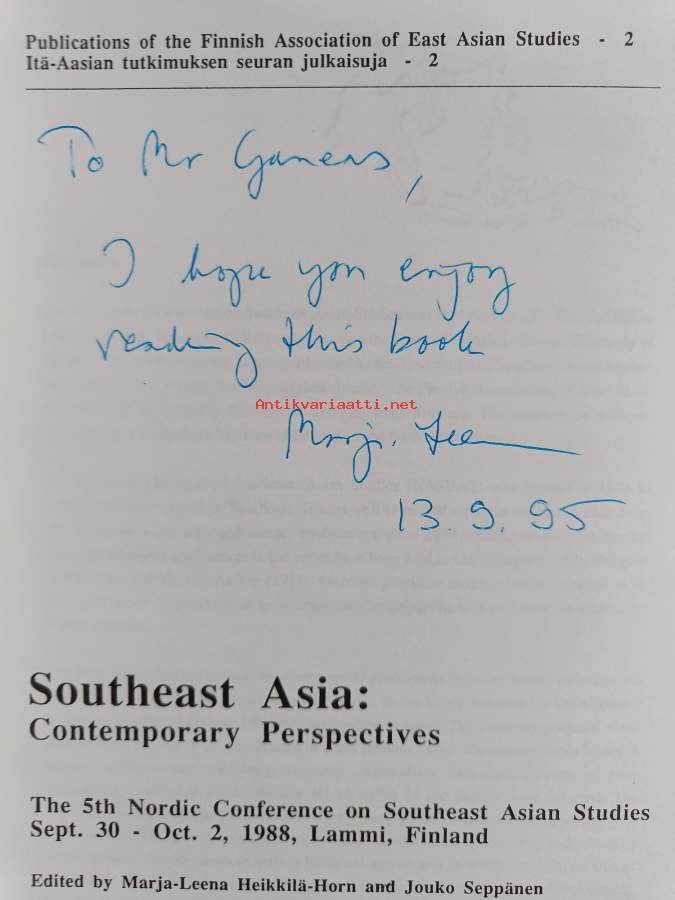 Publications of the Finnish Association of East Asian Studies - 2
Itä-Aasian tutkimuksen seuran julkaisuja - 2
To Mr Ganens,
I hope you enjoy
reading this book
Antikvariaatti.net
13.9.95
Southeast Asia:
Contemporary Perspectives
The 5th Nordic Conference on Southeast Asian Studies
Sept. 30 - Oct. 2, 1988, Lammi, Finland
Edited by Marja-Leena Heikkilä-Horn and Jouko Seppänen